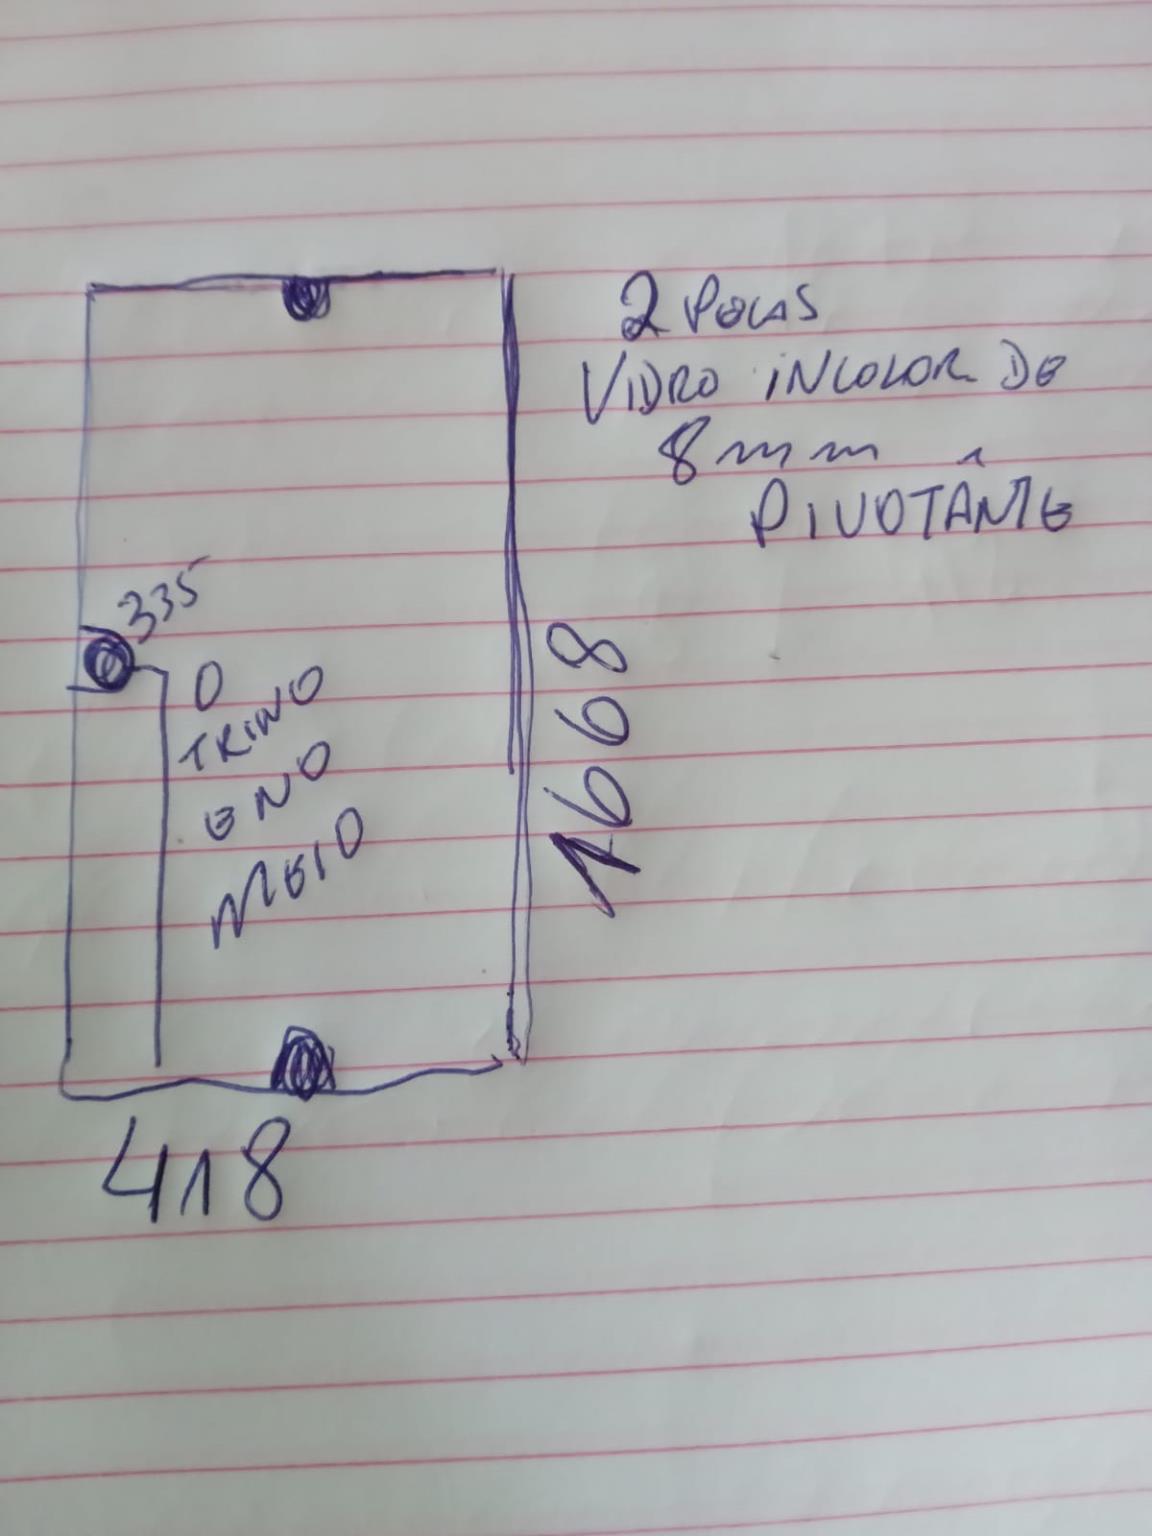 2 PEÇAS
VIDRO INCOLOR DE
8mm
PIVOTÂNTE
335
O
TRINO
E NO
MEIO
1668
418